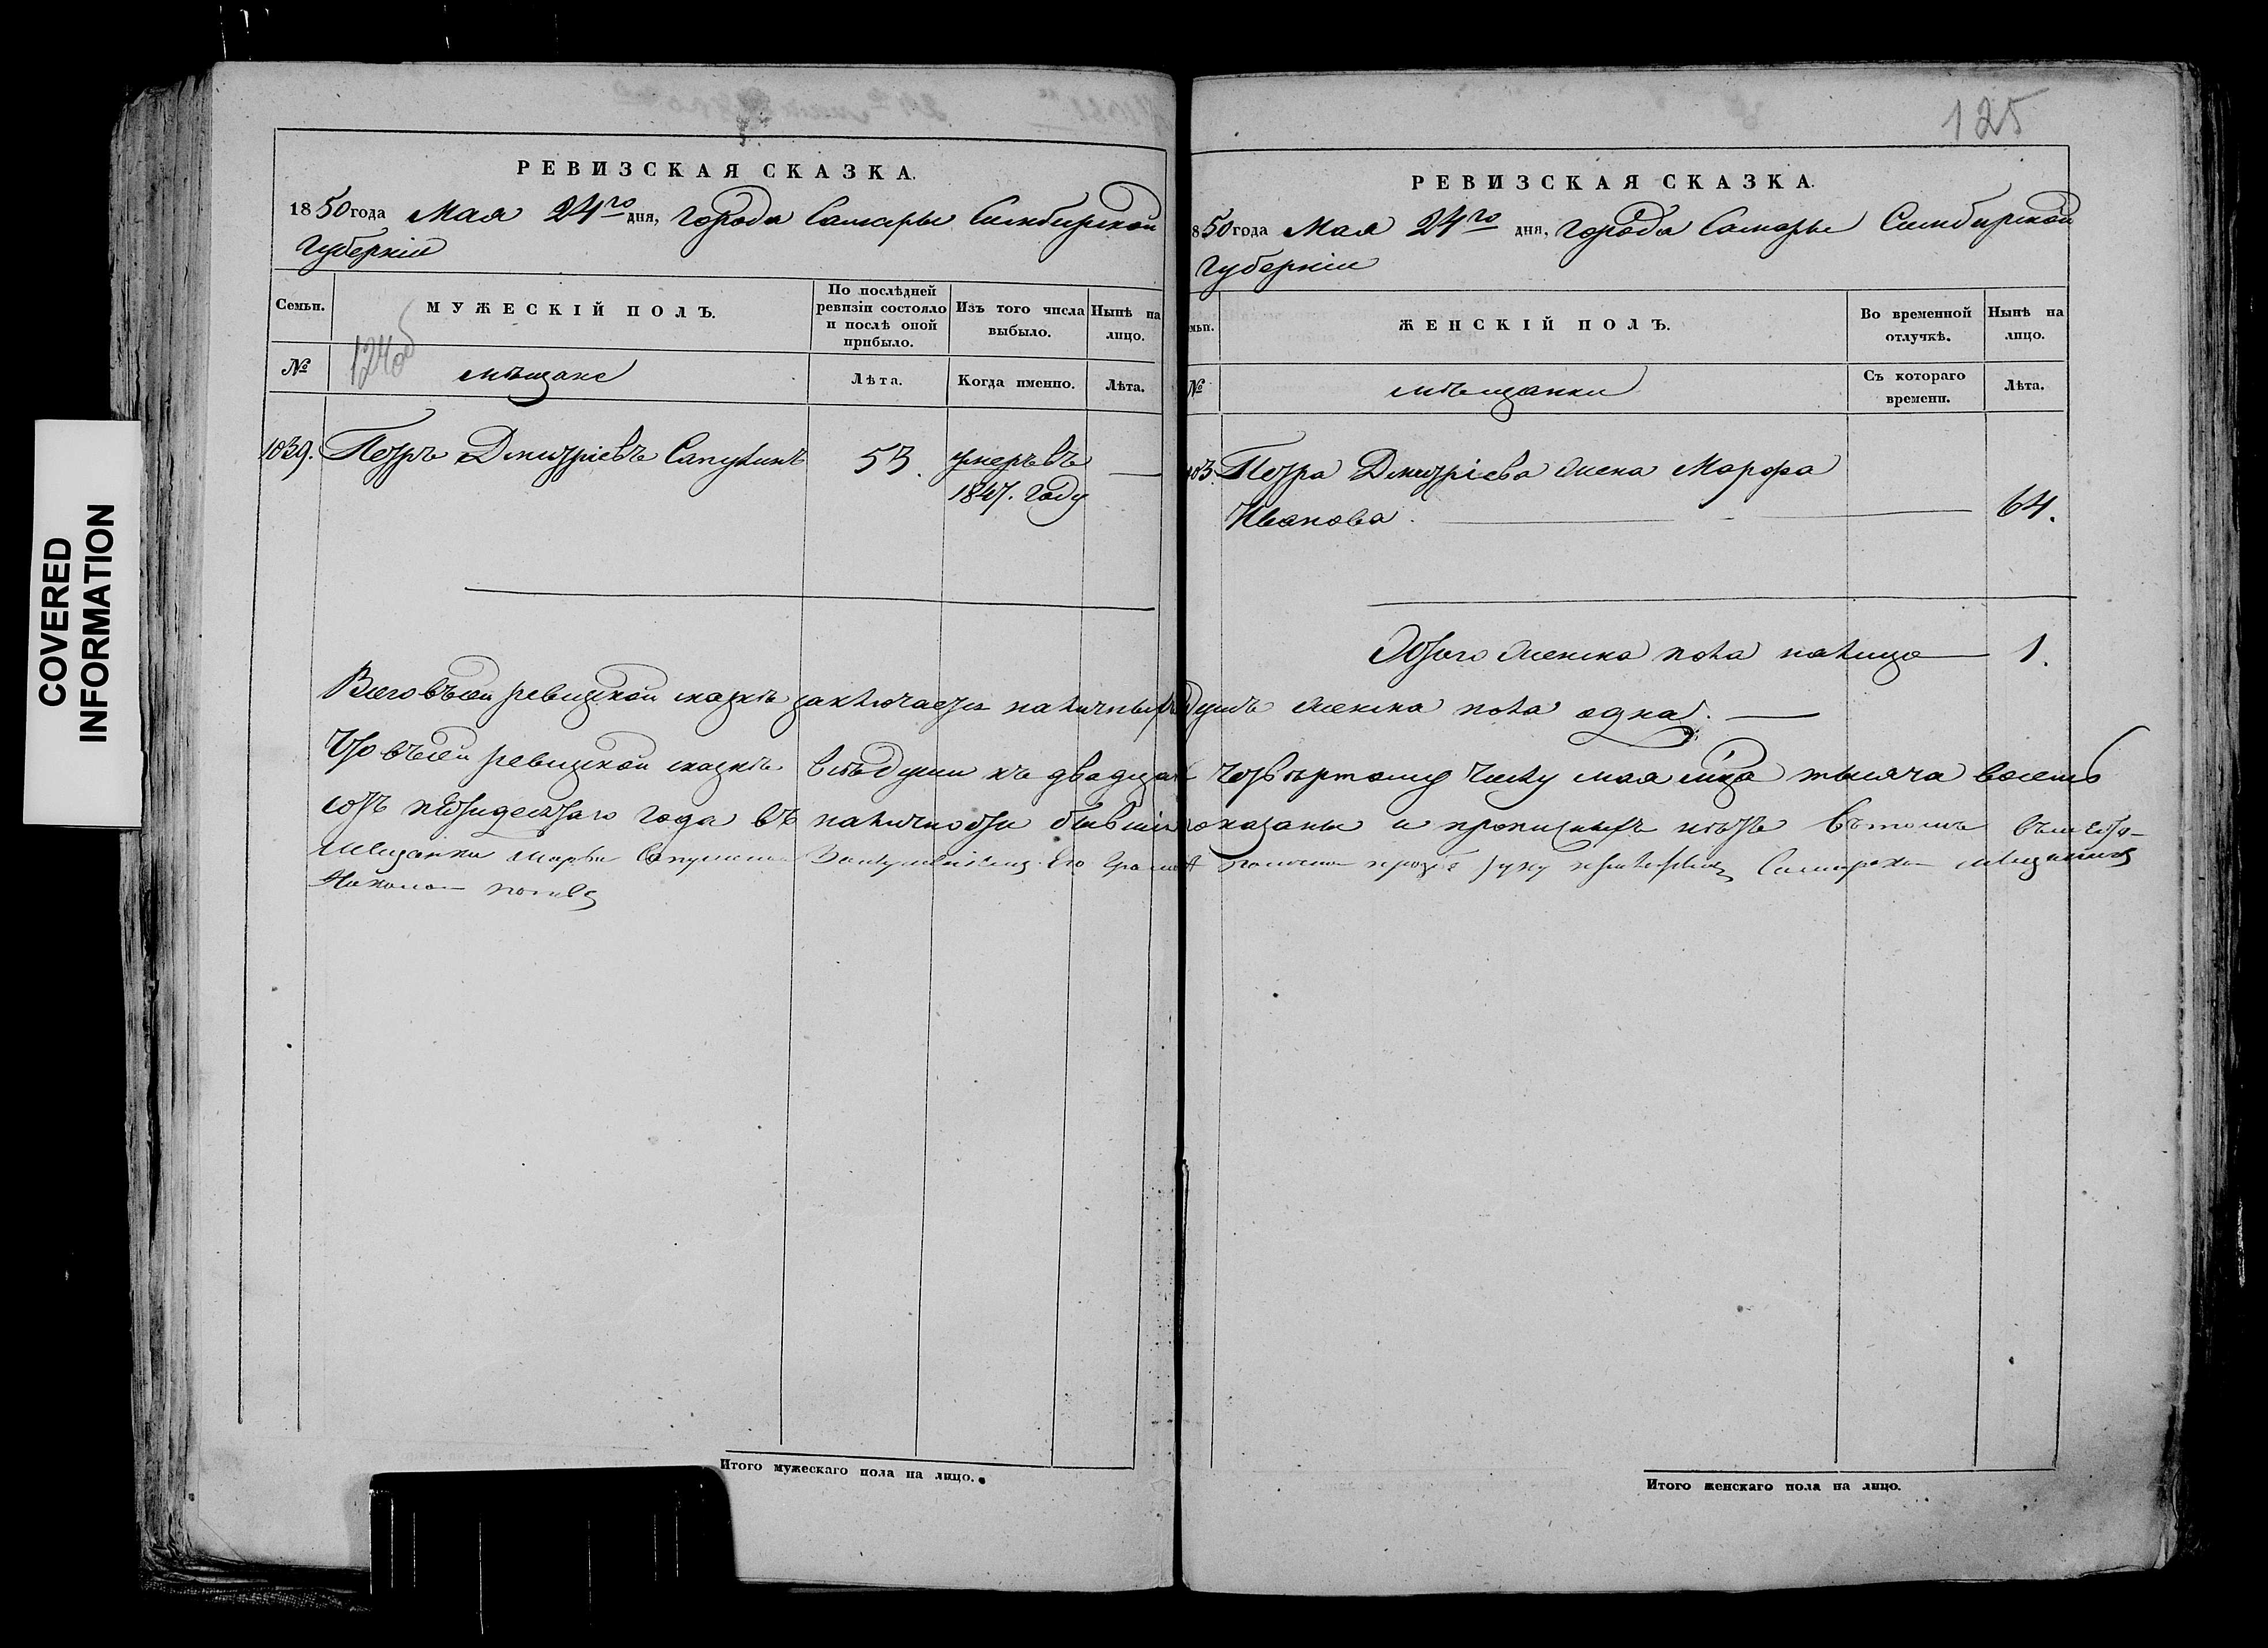 125
РЕВИЗСКАЯ СКАЗКА.
1850 года Мая 24го дня, города Самары Симбирской
Губернии
Семьи.
МУЖЕСКІЙ ПОЛЪ.
По послѣдней ревизіи состояло и послѣ оной прибыло.
Изъ того числа выбыло.
Нынѣ на лицо.
124об
№
мѣщане
Лѣта.
Когда именно.
Лѣта.
1039. Петръ Дмитріевъ Сапункинъ 53. умеръ въ —
1847. году
Всего въ сей ревизской сказкѣ заключается наличныхъ
Что въ сей ревизской сказкѣ всѣ души къ двадцать
сотъ пятидесятаго года въ наличности бывшія
Мещанки Марфы
Итого мужескаго пола на лицо.
РЕВИЗСКАЯ СКАЗКА.
850 года Мая 24го дня, города Самары Симбирской
Губерніи
мьи.
ЖЕНСКІЙ ПОЛЪ.
Во временной отлучкѣ.
Нынѣ на лицо.
№
мѣщанки
Съ котораго времени.
Лѣта.
103 Петра Дмитріева жена Марфа
Иванова. 64.
Итого женска пола налицо 1.
душъ женска пола одна.
четвертому числу мая м͠ца тысяча восемь
показаны и прописныхъ нѣтъ въ томъ
Итого женскаго пола на лицо.
COVERED
INFORMATION